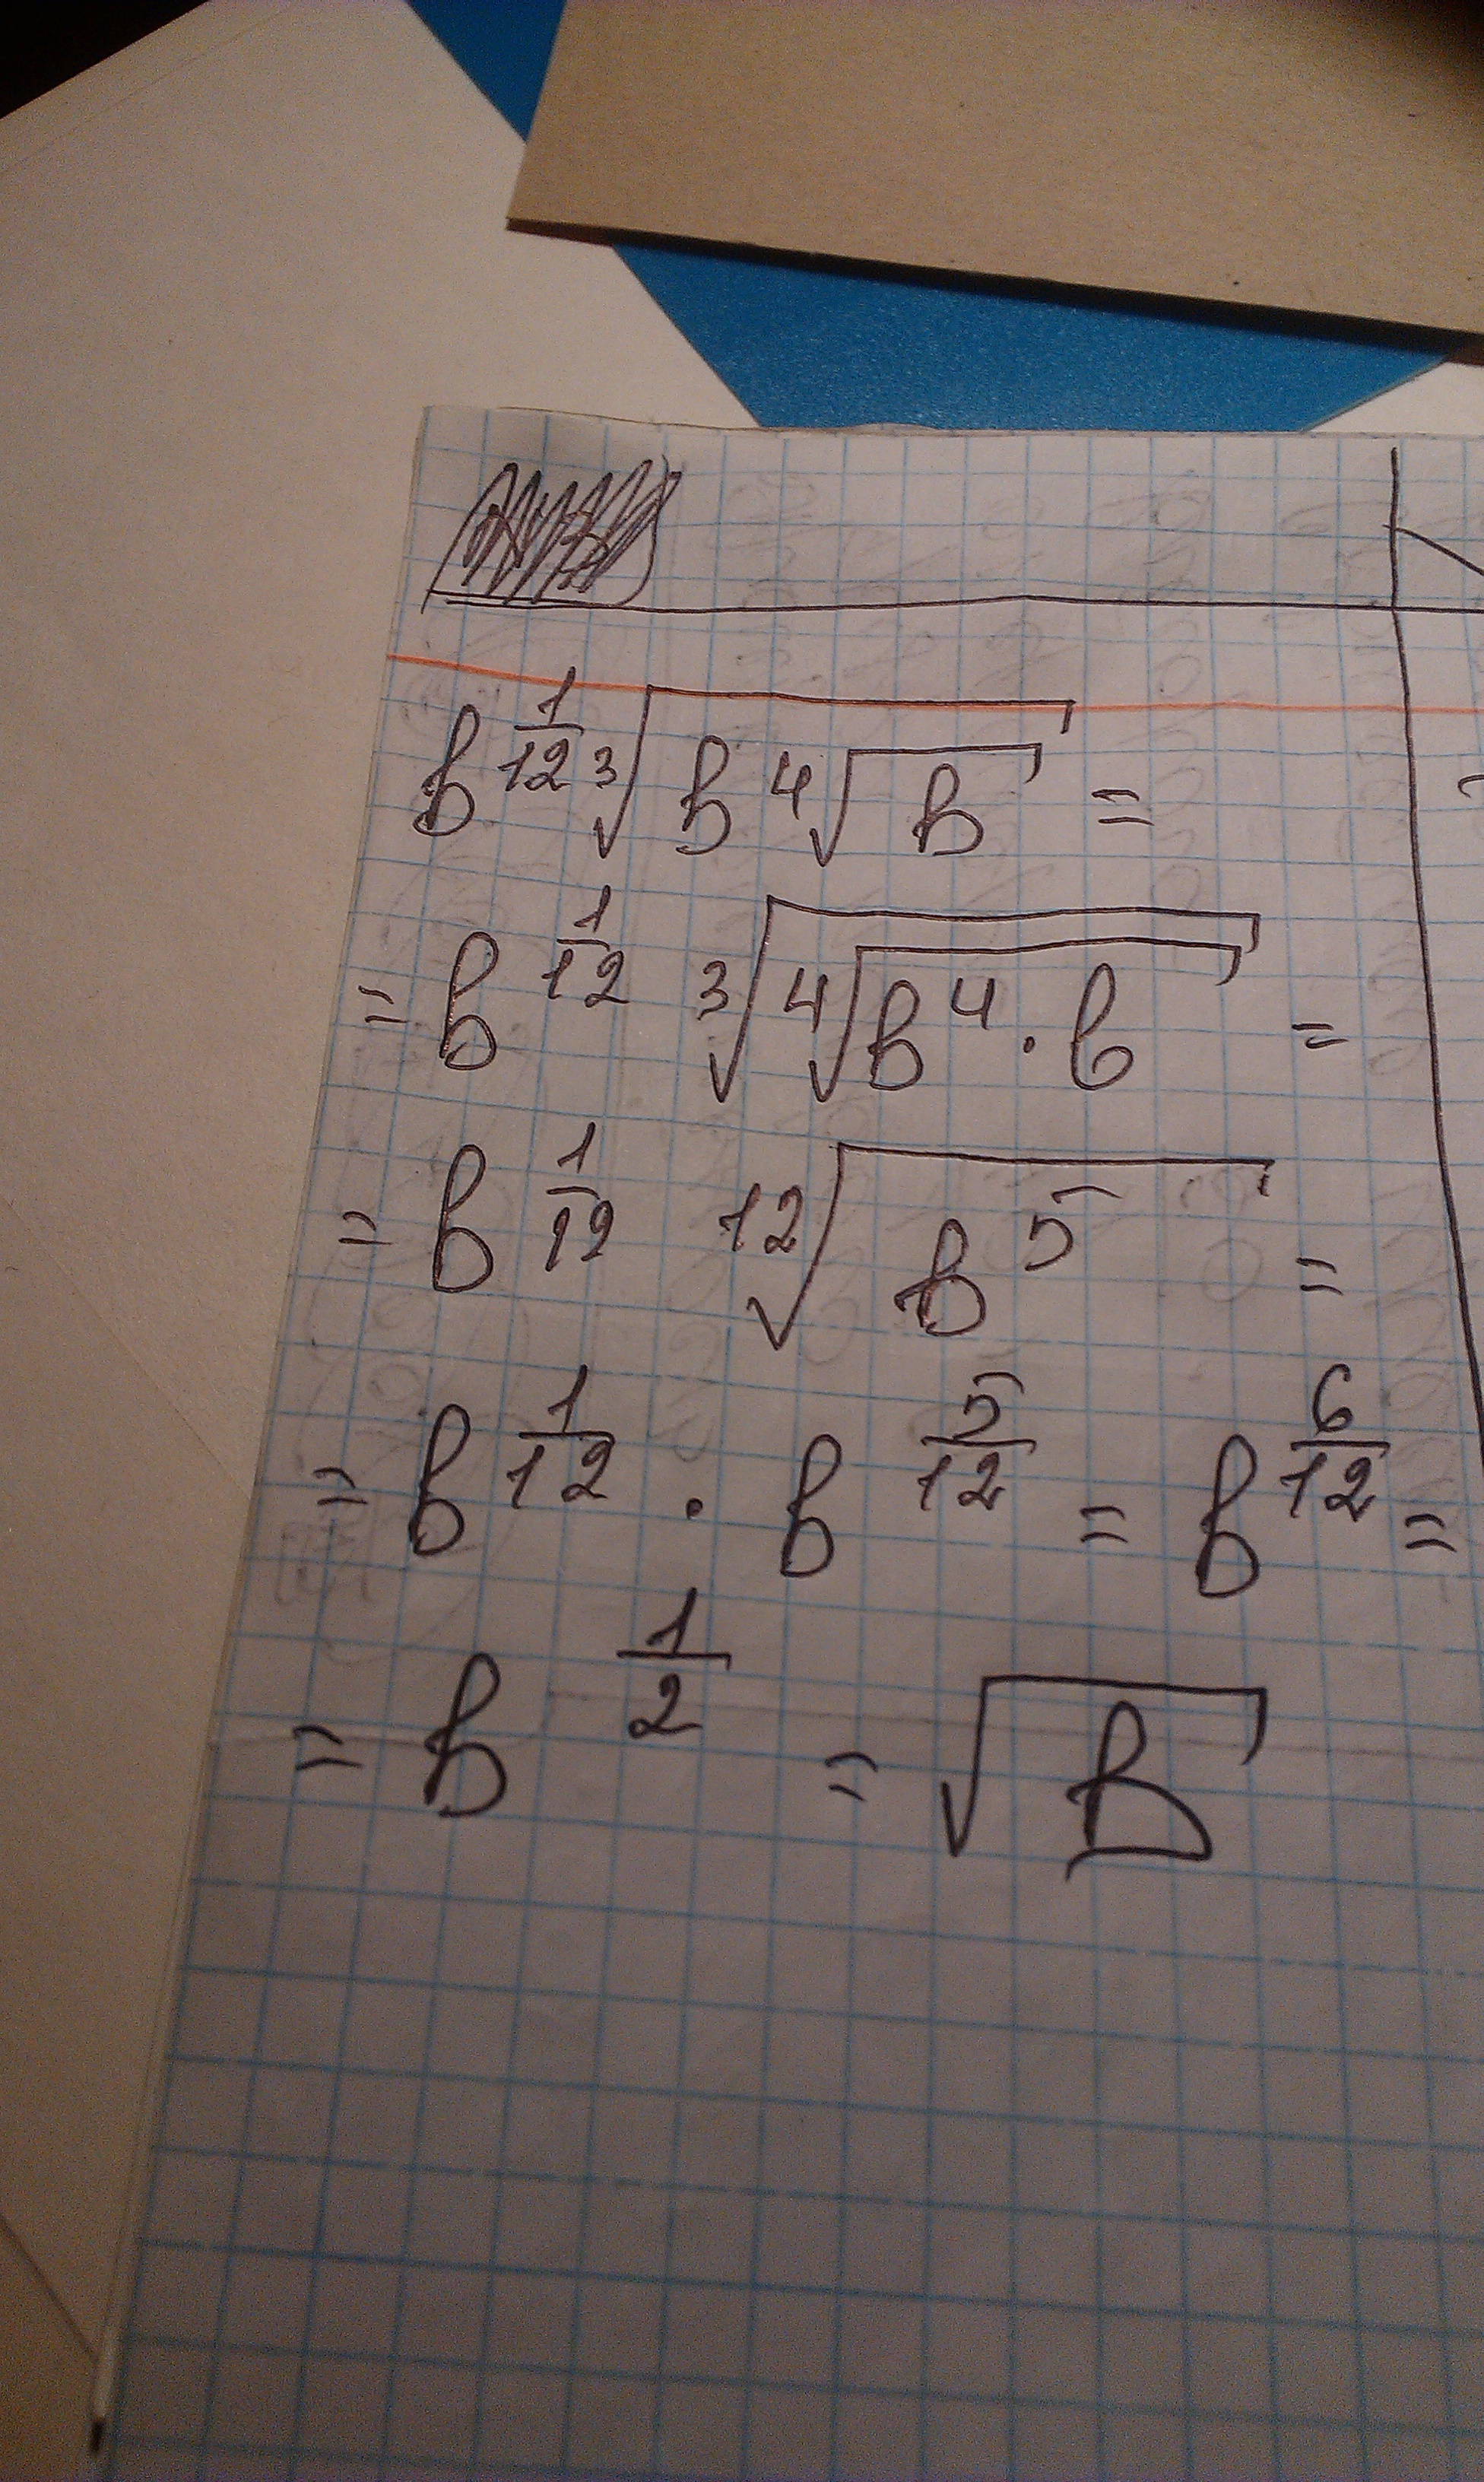 b^(1/12) ∛(b ∜b) =
= b^(1/12) ∛(∜(b⁴ · b)) =
= b^(1/12) ¹²√(b⁵) =
= b^(1/12) · b^(5/12) = b^(6/12) =
= b^(1/2) = √b